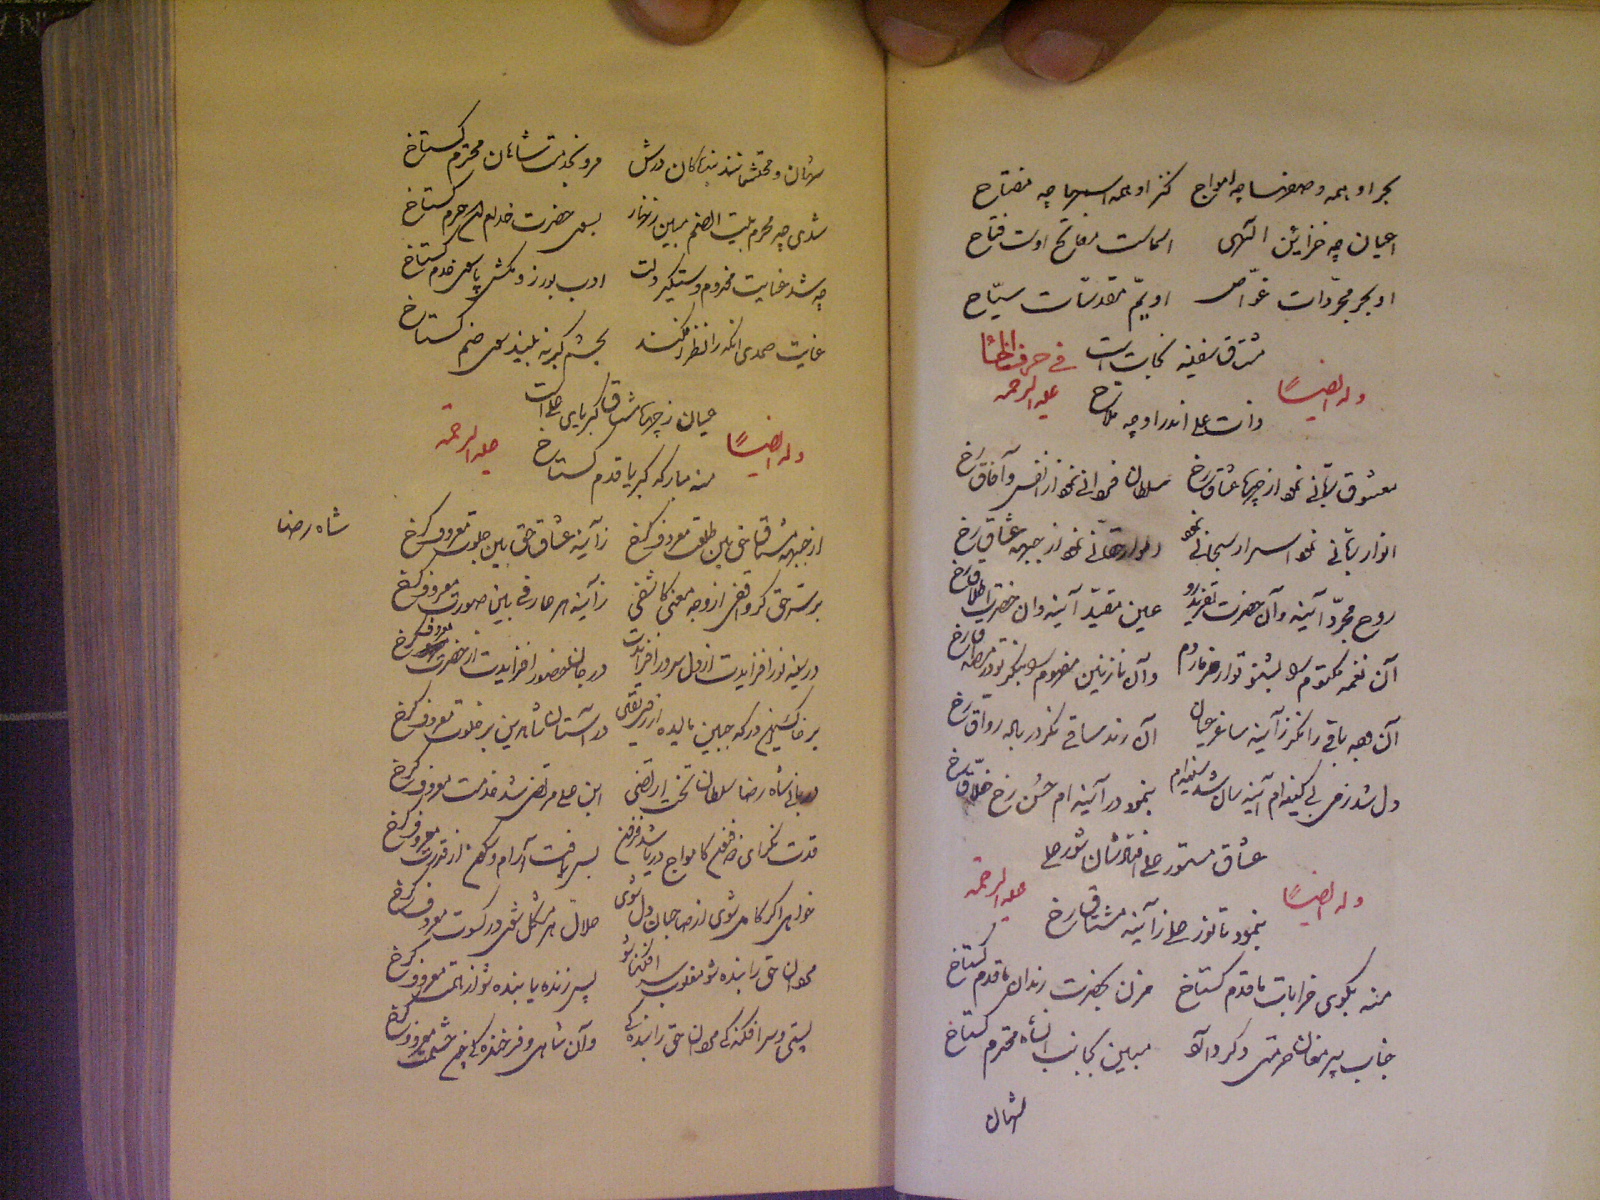 بحر او همه وصفها چه امواج کنز او همه اسمها چه مفتاح
اعیان چه خزاین الهی اسماست مفاتح اوست فتاح
او بحر مجردات غواص او یم مقدسات سیاح
مشتاق سفینه نجات است
فی حرف الخا
وله ایضا
علیه الرحمه
ذات علی اندر او چه ملاح
معشوق ربانی نمود از چهره عشاق رخ سلطان فردانی نمود از انفس و آفاق رخ
انوار ربانی نمود اسرار سبحانی نمود دلدار حقانی نمود از جبهه عشاق رخ
روح مجرد آینه وآن حضرت تفرید رو عین مقید آینه وان حضرت اطلاق رخ
آن نغمه مکتوم بشنو تو از مزمار دم وآن نازنین
آن وجه باقی را نگر ز آینه ساغر عیان آن رند ساقی نگر در هاله رواق رخ
دل شد ز می بی کینه‌ام آینه سان شد سینه‌ام بنمود در آینه‌ام حسن رخ خلاق رخ
عشاق مستور علی افتاد شان شور علی
وله ایضا
علیه الرحمه
بنمود تا نور علی ز آینه مشتاق رخ
منه بکوی خرابات ها قدم گستاخ مزن بحضرت رندان ها قدم گستاخ
جناب پیر مغان حرمتی دگر دارد مبین بجانب آنشاه محترم گستاخ
شهان
شهان و محتشمانند بندگان درش مرو بخدمت شاهان محترم گستاخ
شدی چه محرم بیت الصنم مبین زنهار بسوی حضرت حرم گستاخ
چه شد عنایت مخدوم دستگیر دلت ادب بورز و مکش پای سوی خدم گستاخ
عنایت صمدی آنکه را نظر نکند بچشم کبر نبیند سوی صنم گستاخ
عیان ز چهره مشتاق کبریای علی است
وله ایضا
علیه الرحمه
منه ببارگه کبریا قدم گستاخ
شاه رضا
از جبهه مشتاق حق بین طلعت معروف کرخ ز آینه عشاق حق بین جلوت معروف کرخ
بر سر حق گر واقفی از وجه معنی کاشفی ز آینه هر عارفی بین صورت معروف کرخ
در سینه نور افزایدت از دل سرور افزایدت در جان حضور افزایدت از حضرت معروف کرخ
بر خاک درگه جبین مالیده از در آستان شاه دین بر خلوت معروف کرخ
دربانی شاه رضا سلطان تخت ارتضی ابن علی مرتضی شد خدمت معروف کرخ
قدرت نگر ای کامواج دریا شد بس یافت آرام و سکون از قدرت معروف کرخ
خواهی اگر کامل شوی از صاحبان دل شوی حلال هر مشکل شوی در کسوت معروف کرخ
مردان حق را بنده شو مغلوب سر افکنده شو پس زنده پاینده شو از همت معروف کرخ
پستی و سر افکندگی مردان حق را بندگی وآن شاهی و فرخندگی حشمت معروف کرخ